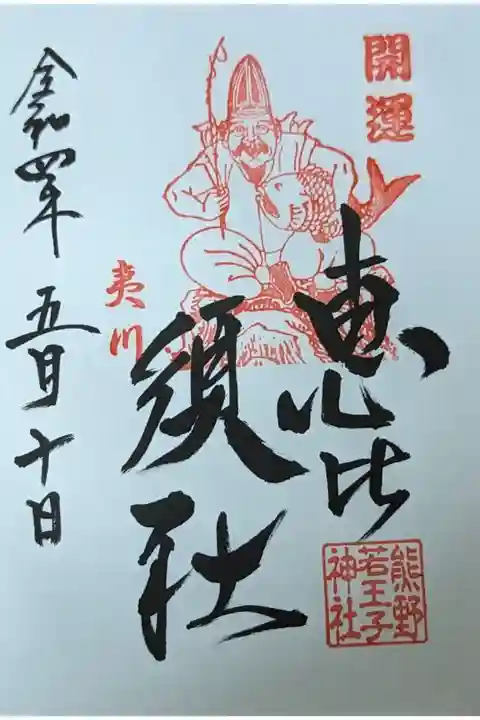 開運
恵比
須社
夷川
熊野
若王子
神社
令和四年 五月 十日